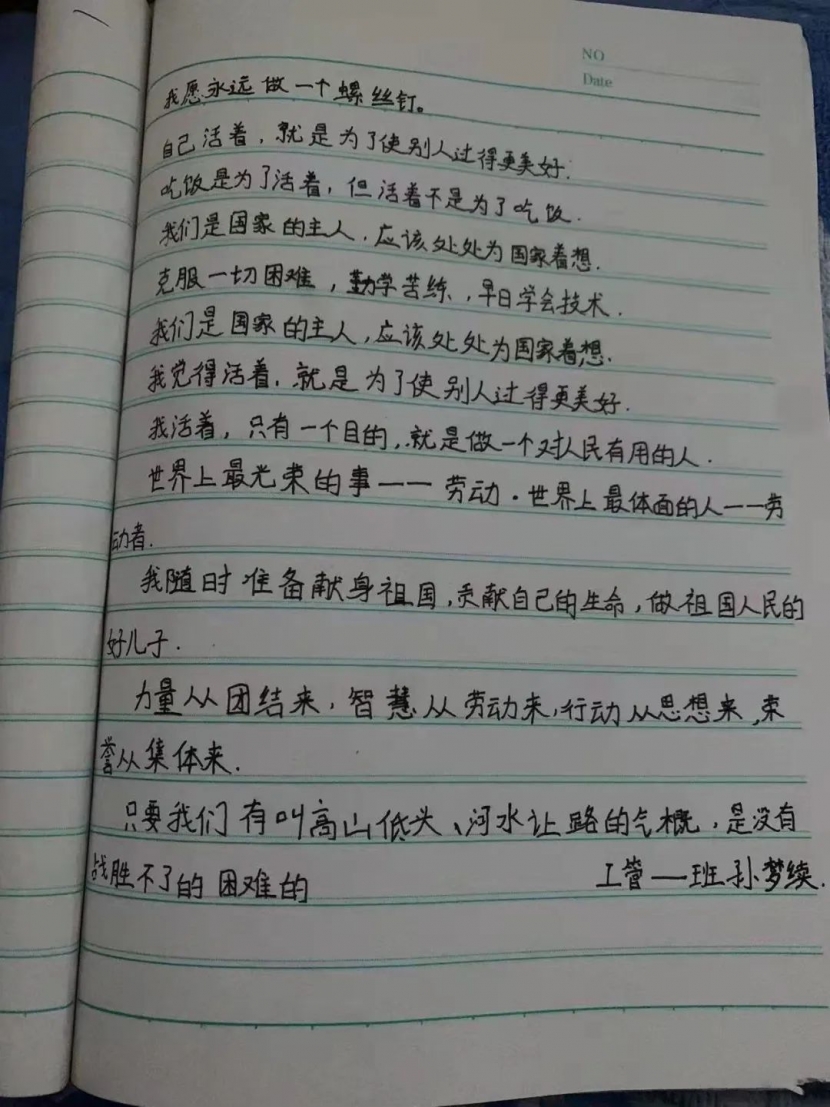 NO
Date
我愿永远做一个螺丝钉。
自己活着，就是为了使别人过得更美好.
吃饭是为了活着，但活着不是为了吃饭.
我们是国家的主人.应该处处为国家着想.
克服一切困难，勤学苦练,早日学会技术.
我们是国家的主人,应该处处为国家着想.
我觉得活着.就是为了使别人过得更美好.
我活着，只有一个目的,就是做一个对人民有用的人.
世界上最光荣的事——劳动.世界上最体面的人——劳
动者.
我随时准备献身祖国,贡献自己的生命,做祖国人民的
好儿子.
力量从团结来,智慧从劳动来,行动从思想来,荣
誉从集体来.
只要我们有叫高山低头、河水让路的气概,是没有
战胜不了的困难的
工管一一班孙梦续.